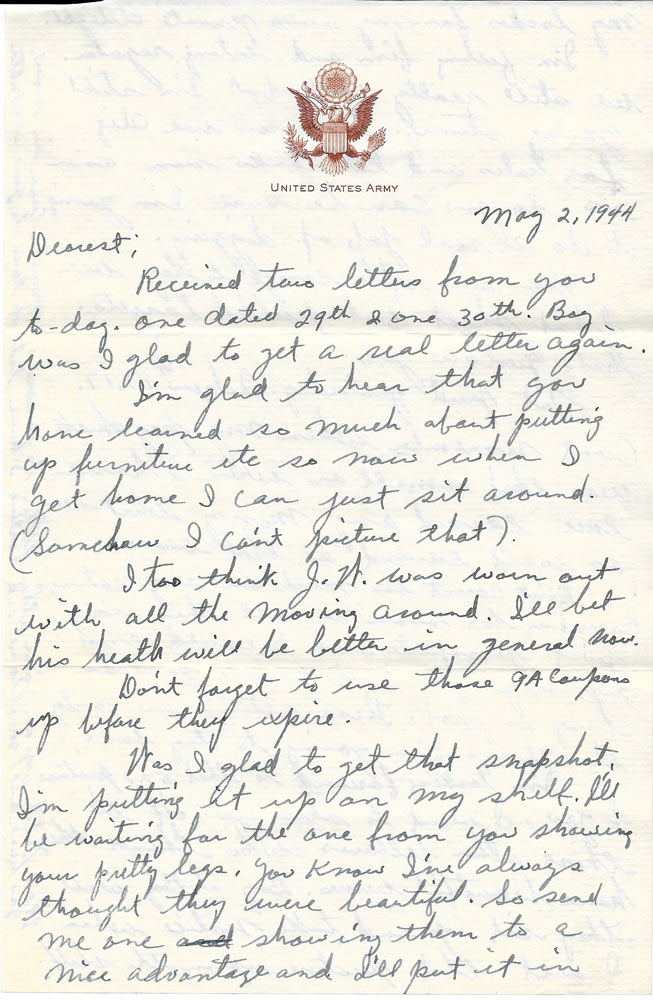 UNITED STATES ARMY
May 2, 1944
Dearest;
Received two letters from you
to-day. One dated 29th & one 30th. Boy
was I glad to get a real letter again.
I'm glad to hear that you
have learned so much about putting
up furniture etc so now when I
get home I can just sit around.
(Somehow I can't picture that).
I too think J.W. was worn out
with all the moving around. I'll bet
his heath will be better in general now.
Don't forget to use those 9A Coupons
up before they expire.
Was I glad to get that snapshot.
I'm putting it up on my shelf. I'll
be waiting for the one from you showing
your pretty legs. You know I've always
thought they were beautiful. So send
me one and showing them to a
nice advantage and I'll put it in